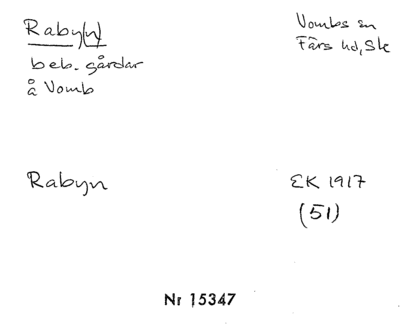 Raby(n)
Vombs sn
Färs hd, Sk
beb. gårdar
å Vomb
Rabyn
EK 1917
(51)
Nr 15347